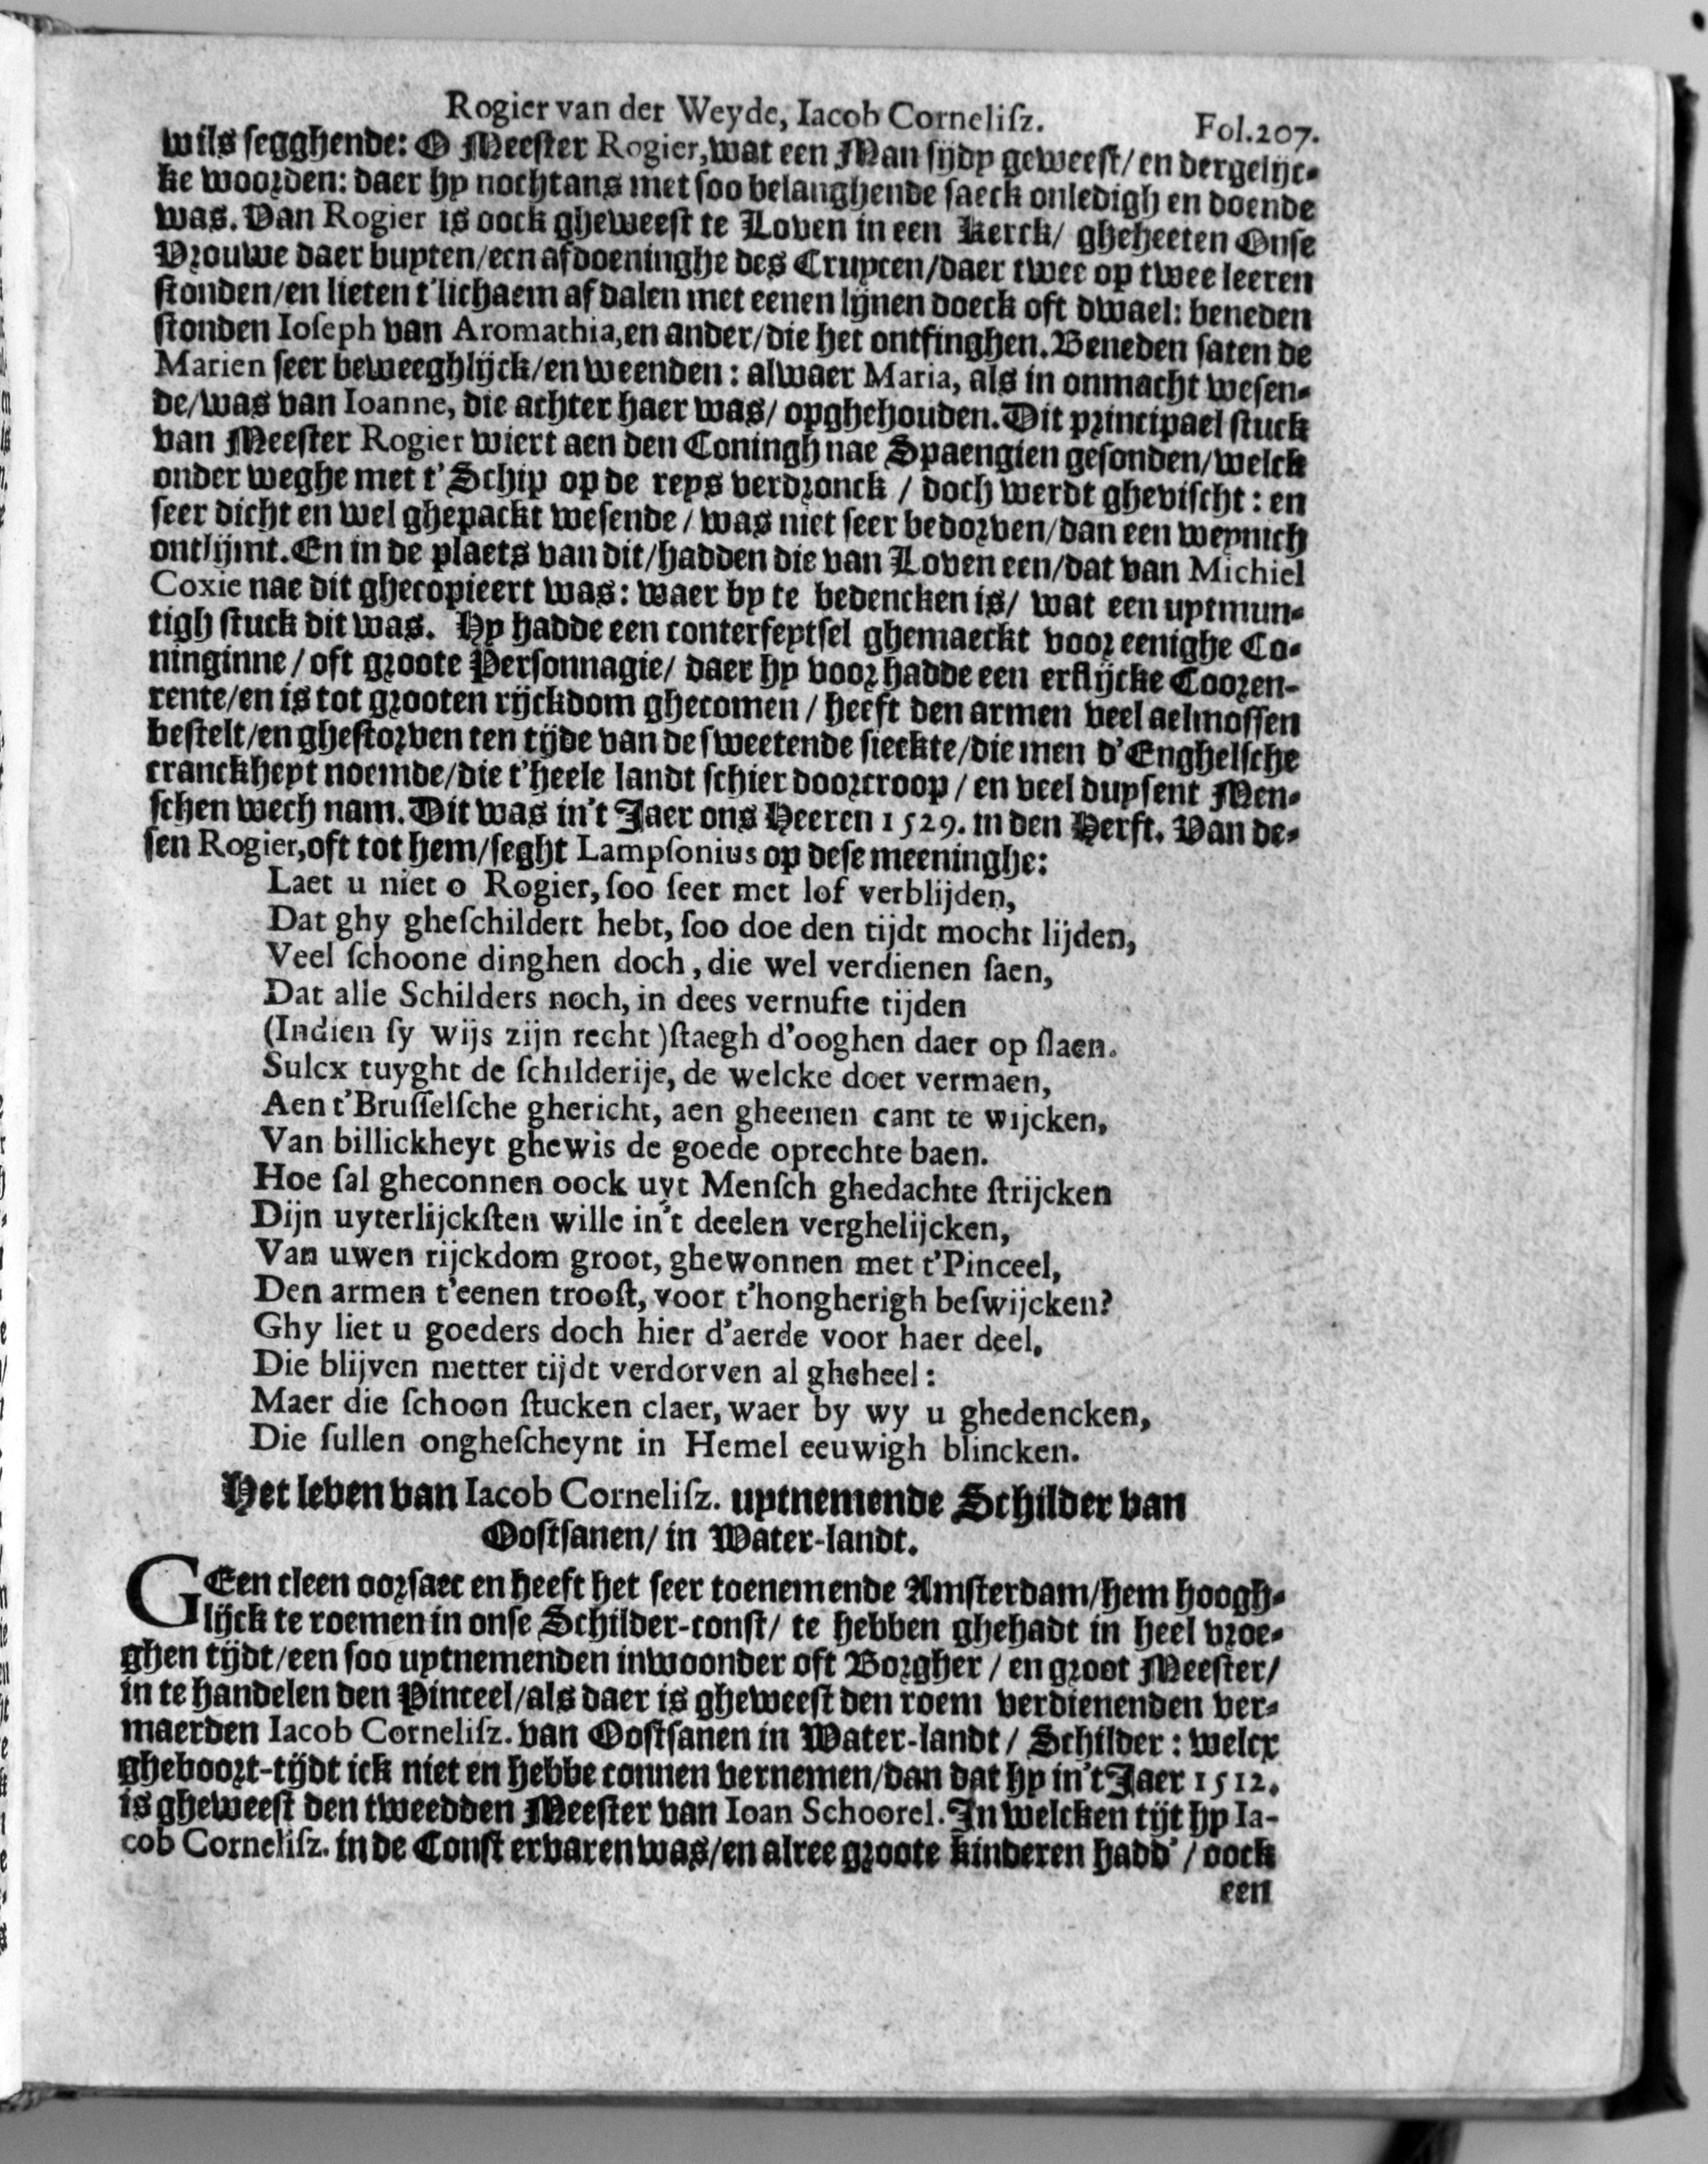 Rogier van der Weyde, Iacob Corneliſz. Fol.207.
wils ſegghende: O Meeſter Rogier, wat een Man ſijdy geweeſt/ en dergelijc-
ke woorden: daer hy nochtans met ſoo belanghende ſaeck onledigh en doende
was. Van Rogier is oock gheweeſt te Loven in een Kerck/ gheheeten Onſe
Vrouwe daer buyten/een afdoeninghe des Cruycen/daer twee op twee leeren
ſtonden/en lieten t'lichaem af dalen met eenen lijnen doeck oft dwael: beneden
ſtonden Ioſeph van Aromathia, en ander/die het ontfinghen. Beneden ſaten de
Marien ſeer beweeghlijck/en weenden: alwaer Maria, als in onmacht weſen-
de/was van Ioanne, die achter haer was/ opghehouden. Dit principael ſtuck
van Meeſter Rogier wiert aen den Coningh nae Spaengien geſonden/welck
onder weghe met t'Schip op de reys verdronck / doch werdt gheviſcht: en
ſeer dicht en wel ghepackt weſende/ was niet ſeer bedorven/dan een weynich
ontlijmt. En in de plaets van dit/hadden die van Loven een/dat van Michiel
Coxie nae dit ghecopieert was: waer by te bedencken is/ wat een uytmun-
tigh ſtuck dit was. Hy hadde een conterfeytſel ghemaeckt voor eenighe Co-
ninginne/ oft groote Perſonnagie/ daer hy voor hadde een erflijcke Cooren-
rente/en is tot grooten rijckdom ghecomen / heeft den armen veel aelmoſſen
beſtelt/en gheſtorven ten tijde van de ſweetende ſieckte/die men d'Enghelſche
cranckheyt noemde/die t'heele landt ſchier doorcroop / en veel duyſent Men-
ſchen wech nam. Dit was in't Jaer ons Heeren 1529. in den Herfſt. Van de-
ſen Rogier, oft tot hem/ſeght Lampſonius op deſe meeninghe:
Laet u niet o Rogier, ſoo ſeer met lof verblijden,
Dat ghy gheſchildert hebt, ſoo doe den tijdt mocht lijden,
Veel ſchoone dinghen doch, die wel verdienen ſaen,
Dat alle Schilders noch, in dees vernufte tijden
(Indien ſy wijs zijn recht) ſtaegh d'ooghen daer op ſlaen.
Sulcx tuyght de ſchilderije, de welcke doet vermaen,
Aen t'Bruſſelſche ghericht, aen gheenen cant te wijcken,
Van billickheyt ghewis de goede oprechte baen.
Hoe ſal gheconnen oock uyt Menſch ghedachte ſtrijcken
Dijn uyterlijckſten wille in't deelen verghelijcken,
Van uwen rijckdom groot, ghewonnen met t'Pinceel,
Den armen t'eenen trooſt, voor t'hongherigh beſwijcken?
Ghy liet u goeders doch hier d'aerde voor haer deel,
Die blijven metter tijdt verdorven al gheheel:
Maer die ſchoon ſtucken claer, waer by wy u ghedencken,
Die ſullen ongheſcheynt in Hemel eeuwigh blincken.
Het leven van Iacob Corneliſz. uytnemende Schilder van
Ooſtſanen/ in Water-landt.
GEen cleen oorſaec en heeft het ſeer toenemende Amſterdam/hem hoogh-
lijck te roemen in onſe Schilder-conſt/ te hebben ghehadt in heel vroe-
ghen tijdt/een ſoo uytnemenden inwoonder oft Borgher / en groot Meeſter/
in te handelen den Pinceel/als daer is gheweeſt den roem verdienenden ver-
maerden Iacob Corneliſz. van Ooſtſanen in Water-landt/ Schilder: welcx
gheboort-tijdt ick niet en hebbe connen vernemen/dan dat hy in't Jaer 1512.
is gheweeſt den tweedden Meeſter van Ioan Schoorel. In welcken tijt hy Ia-
cob Corneliſz. in de Conſt ervaren was/en alree groote kinderen hadd' / oock
een